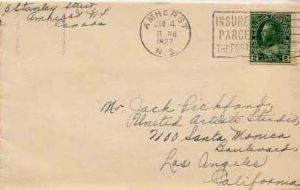 5 Stanley Street,
Amherst N.S.
Canada
AMHERST
4
1927
N.S.
INSURE
PARCE
THE POS
Mr Jack Pickford,
United Artists Studio,
7100 Santa Monica
Boulevard,
Los Angeles
California